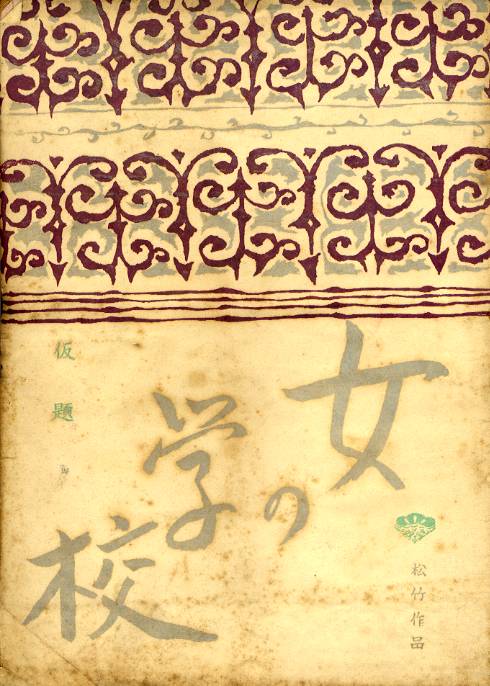 女の学校
松竹作品
仮題